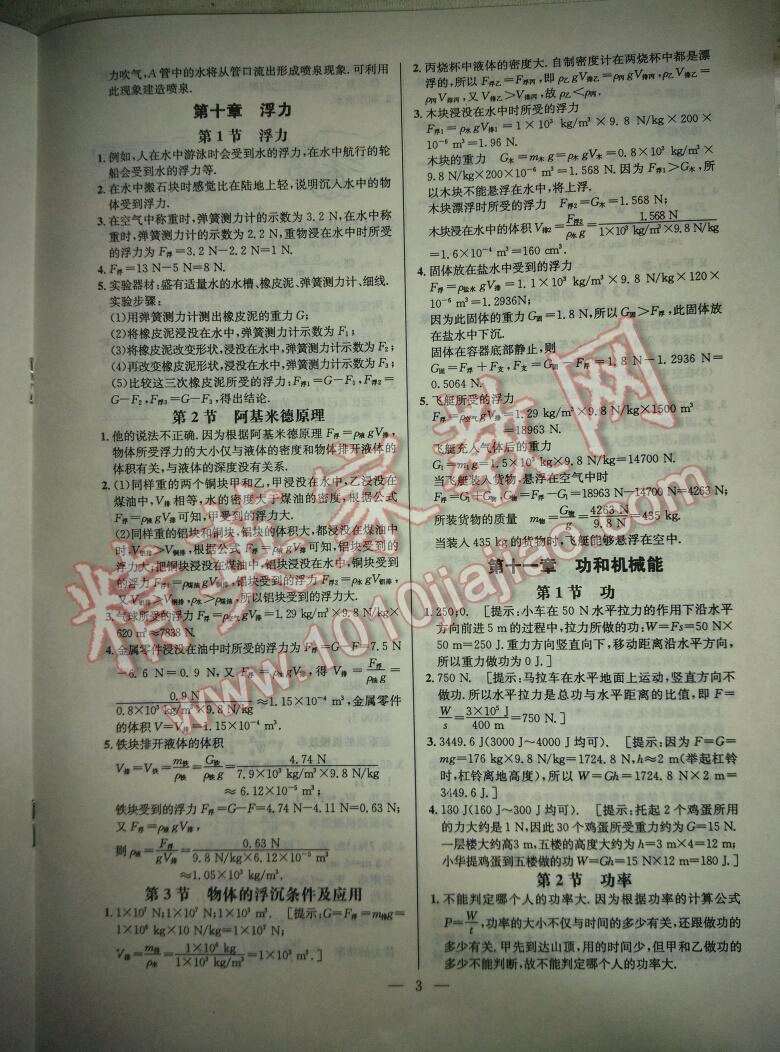 力吹气,A管中的水将从管口流出形成喷泉现象.可利用
此现象建造喷泉.
第十章 浮力
第1节 浮力
1.例如,人在水中游泳时会受到水的浮力,在水中航行的轮
船会受到水的浮力等.
2.在水中搬石块时感觉比在陆地上轻,说明沉入水中的物
体受到浮力.
3.在空气中称重时,弹簧测力计的示数为3.2 N,在水中称
重时,弹簧测力计的示数为2.2 N,重物浸在水中时所受
的浮力为F浮=3.2 N-2.2 N=1 N.
4.F浮=13 N-5 N=8 N.
5.实验器材:盛有适量水的水槽、橡皮泥、弹簧测力计、细线.
实验步骤:
(1)用弹簧测力计测出橡皮泥的重力G;
(2)将橡皮泥浸没在水中,弹簧测力计示数为F₁;
(3)将橡皮泥改变形状,浸没在水中,弹簧测力计示数为F₂;
(4)再改变橡皮泥形状,浸没在水中,弹簧测力计示数为F₃;
(5)比较这三次橡皮泥所受的浮力:F浮1=G-F₁,F浮2=
G-F₂,F浮3=G-F₃,得出结论.
第2节 阿基米德原理
1.他的说法不正确.因为根据阿基米德原理F浮=ρ液gV排,
物体所受浮力的大小仅与液体的密度和物体排开液体的
体积有关,与液体的深度没有关系.
2.(1)同样重的两个铜块甲和乙,甲浸没在水中,乙浸没在
煤油中,V排相等,水的密度大于煤油的密度,根据公式
F浮=ρ液gV排可知,甲受到的浮力大.
(2)同样重的铝块和铜块,铝块的体积大,都浸没在煤油中
时,V铝排>V铜排,根据公式F浮=ρ液gV排可知,铝块受到的
浮力大,把铜块浸没在煤油中,铝块浸没在水中,铜块受到
的浮力F浮=ρ煤油gV铜排,铝块受到的浮力F浮=ρ水gV铝排,
V铝排>V铜排,ρ水>ρ煤油,所以铝块受到的浮力大.
3.气球所受的浮力F浮=ρ空气gV排=1.29 kg/m³×9.8 N/kg×
620 m³≈7838 N.
4.金属零件浸没在油中时所受的浮力为F浮=G-F=7.5 N
-6.6 N=0.9 N,又F浮=ρ油gV排,得V排=F浮/ρ油g=
0.9 N/(0.8×10³ kg/m³×9.8 N/kg)≈1.15×10⁻⁴ m³,金属零件
的体积V=V排=1.15×10⁻⁴ m³.
5.铁块排开液体的体积
V排=V铁=m铁/ρ铁=G铁/ρ铁g=4.74 N/(7.9×10³ kg/m³×9.8 N/kg)
≈6.12×10⁻⁵ m³;
铁块受到的浮力F浮=G-F=4.74 N-4.11 N=0.63 N;
又F浮=ρ液gV排,
则ρ液=F浮/gV排=0.63 N/(9.8 N/kg×6.12×10⁻⁵ m³)
≈1.05×10³ kg/m³.
第3节 物体的浮沉条件及应用
1.1×10⁷ N;1×10⁷ N;1×10³ m³. [提示:G=F浮=m排g=
1×10⁶ kg×10 N/kg=1×10⁷ N;
V排=m排/ρ水=1×10⁶ kg/(1×10³ kg/m³)=1×10³ m³.]
2.丙烧杯中液体的密度大.自制密度计在两烧杯中都是漂
浮的,所以F浮乙=F浮丙,即ρ乙gV排乙=ρ丙gV排丙,ρ乙V排乙=
ρ丙V排丙,又V排乙>V排丙,故ρ乙<ρ丙.
3.木块浸没在水中时所受的浮力
F浮1=ρ水gV排1=1×10³ kg/m³×9.8 N/kg×200×
10⁻⁶ m³=1.96 N.
木块的重力 G木=m木g=ρ木gV木=0.8×10³ kg/m³×
9.8 N/kg×200×10⁻⁶ m³=1.568 N.因为F浮1>G木,所
以木块不能悬浮在水中,将上浮.
木块漂浮时所受的浮力 F浮2=G木=1.568 N;
木块浸在水中的体积V排2=F浮2/ρ水g=1.568 N/(1×10³ kg/m³×9.8 N/kg)
=1.6×10⁻⁴ m³=160 cm³.
4.固体放在盐水中受到的浮力
F浮=ρ盐水gV排=1.1×10³ kg/m³×9.8 N/kg×120×
10⁻⁶ m³=1.2936N;
因为此固体的重力G固=1.8 N,所以G固>F浮,此固体放
在盐水中下沉.
固体在容器底部静止,则
G固=F浮+F支,F支=G固-F浮=1.8 N-1.2936 N=
0.5064 N.
5.飞艇所受的浮力
F浮=ρ空气gV排=1.29 kg/m³×9.8 N/kg×1500 m³
=18963 N.
飞艇充入气体后的重力
G₁=m₁g=1.5×10³ kg×9.8 N/kg=14700 N.
当飞艇装入货物,悬浮在空气中时
F浮=G₁+G物,G物=F浮-G₁=18963 N-14700 N=4263 N;
所装货物的质量 m物=G物/g=4263 N/9.8 N/kg=435 kg.
当装入435 kg的货物时,飞艇能够悬浮在空中.
第十一章 功和机械能
第1节 功
1.250;0. [提示:小车在50 N水平拉力的作用下沿水平
方向前进5 m的过程中,拉力所做的功:W=Fs=50 N×
50 m=250 J.重力方向竖直向下,移动距离沿水平方向,
所以重力做功为0 J.]
2.750 N. [提示:马拉车在水平地面上运动,竖直方向不
做功.所以水平拉力是总功与水平距离的比值,即F=
W/s=3×10⁵ J/400 m=750 N.]
3.3449.6 J(3000 J～4000 J均可). [提示:因为F=G=
mg=176 kg×9.8 N/kg=1724.8 N,h≈2 m(举起杠铃
时,杠铃离地高度),所以W=Gh=1724.8 N×2 m=
3449.6 J.]
4.180 J(160 J～300 J均可). [提示:托起2个鸡蛋所用
的力大约是1 N,因此30个鸡蛋所受重力约为G=15 N.
一层楼大约高3 m,五楼的高度大约为h=3 m×4=12 m;
小华提鸡蛋到五楼做的功W=Gh=15 N×12 m=180 J.]
第2节 功率
1.不能判定哪个人的功率大.因为根据功率的计算公式
P=W/t,功率的大小不仅与时间的多少有关,还跟做功的
多少有关.甲先到达山顶,用的时间少,但甲和乙做功的
多少不能判断,故不能判定哪个人的功率大.
— 3 —
精英家教网
www.1010jiajiao.com